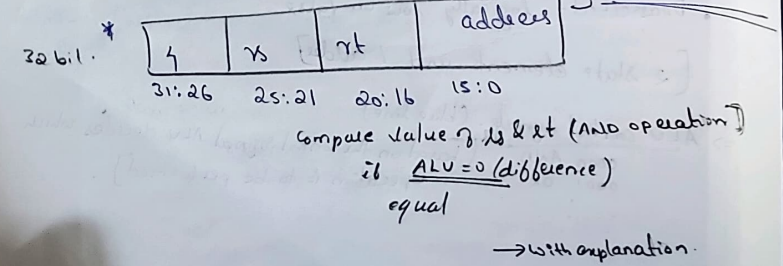 *
address
32 bit.
4 rs rt
31:26 25:21 20:16 15:0
compare value of rs & rt (AND operation)
if ALU=0 (difference)
equal
→with explanation.